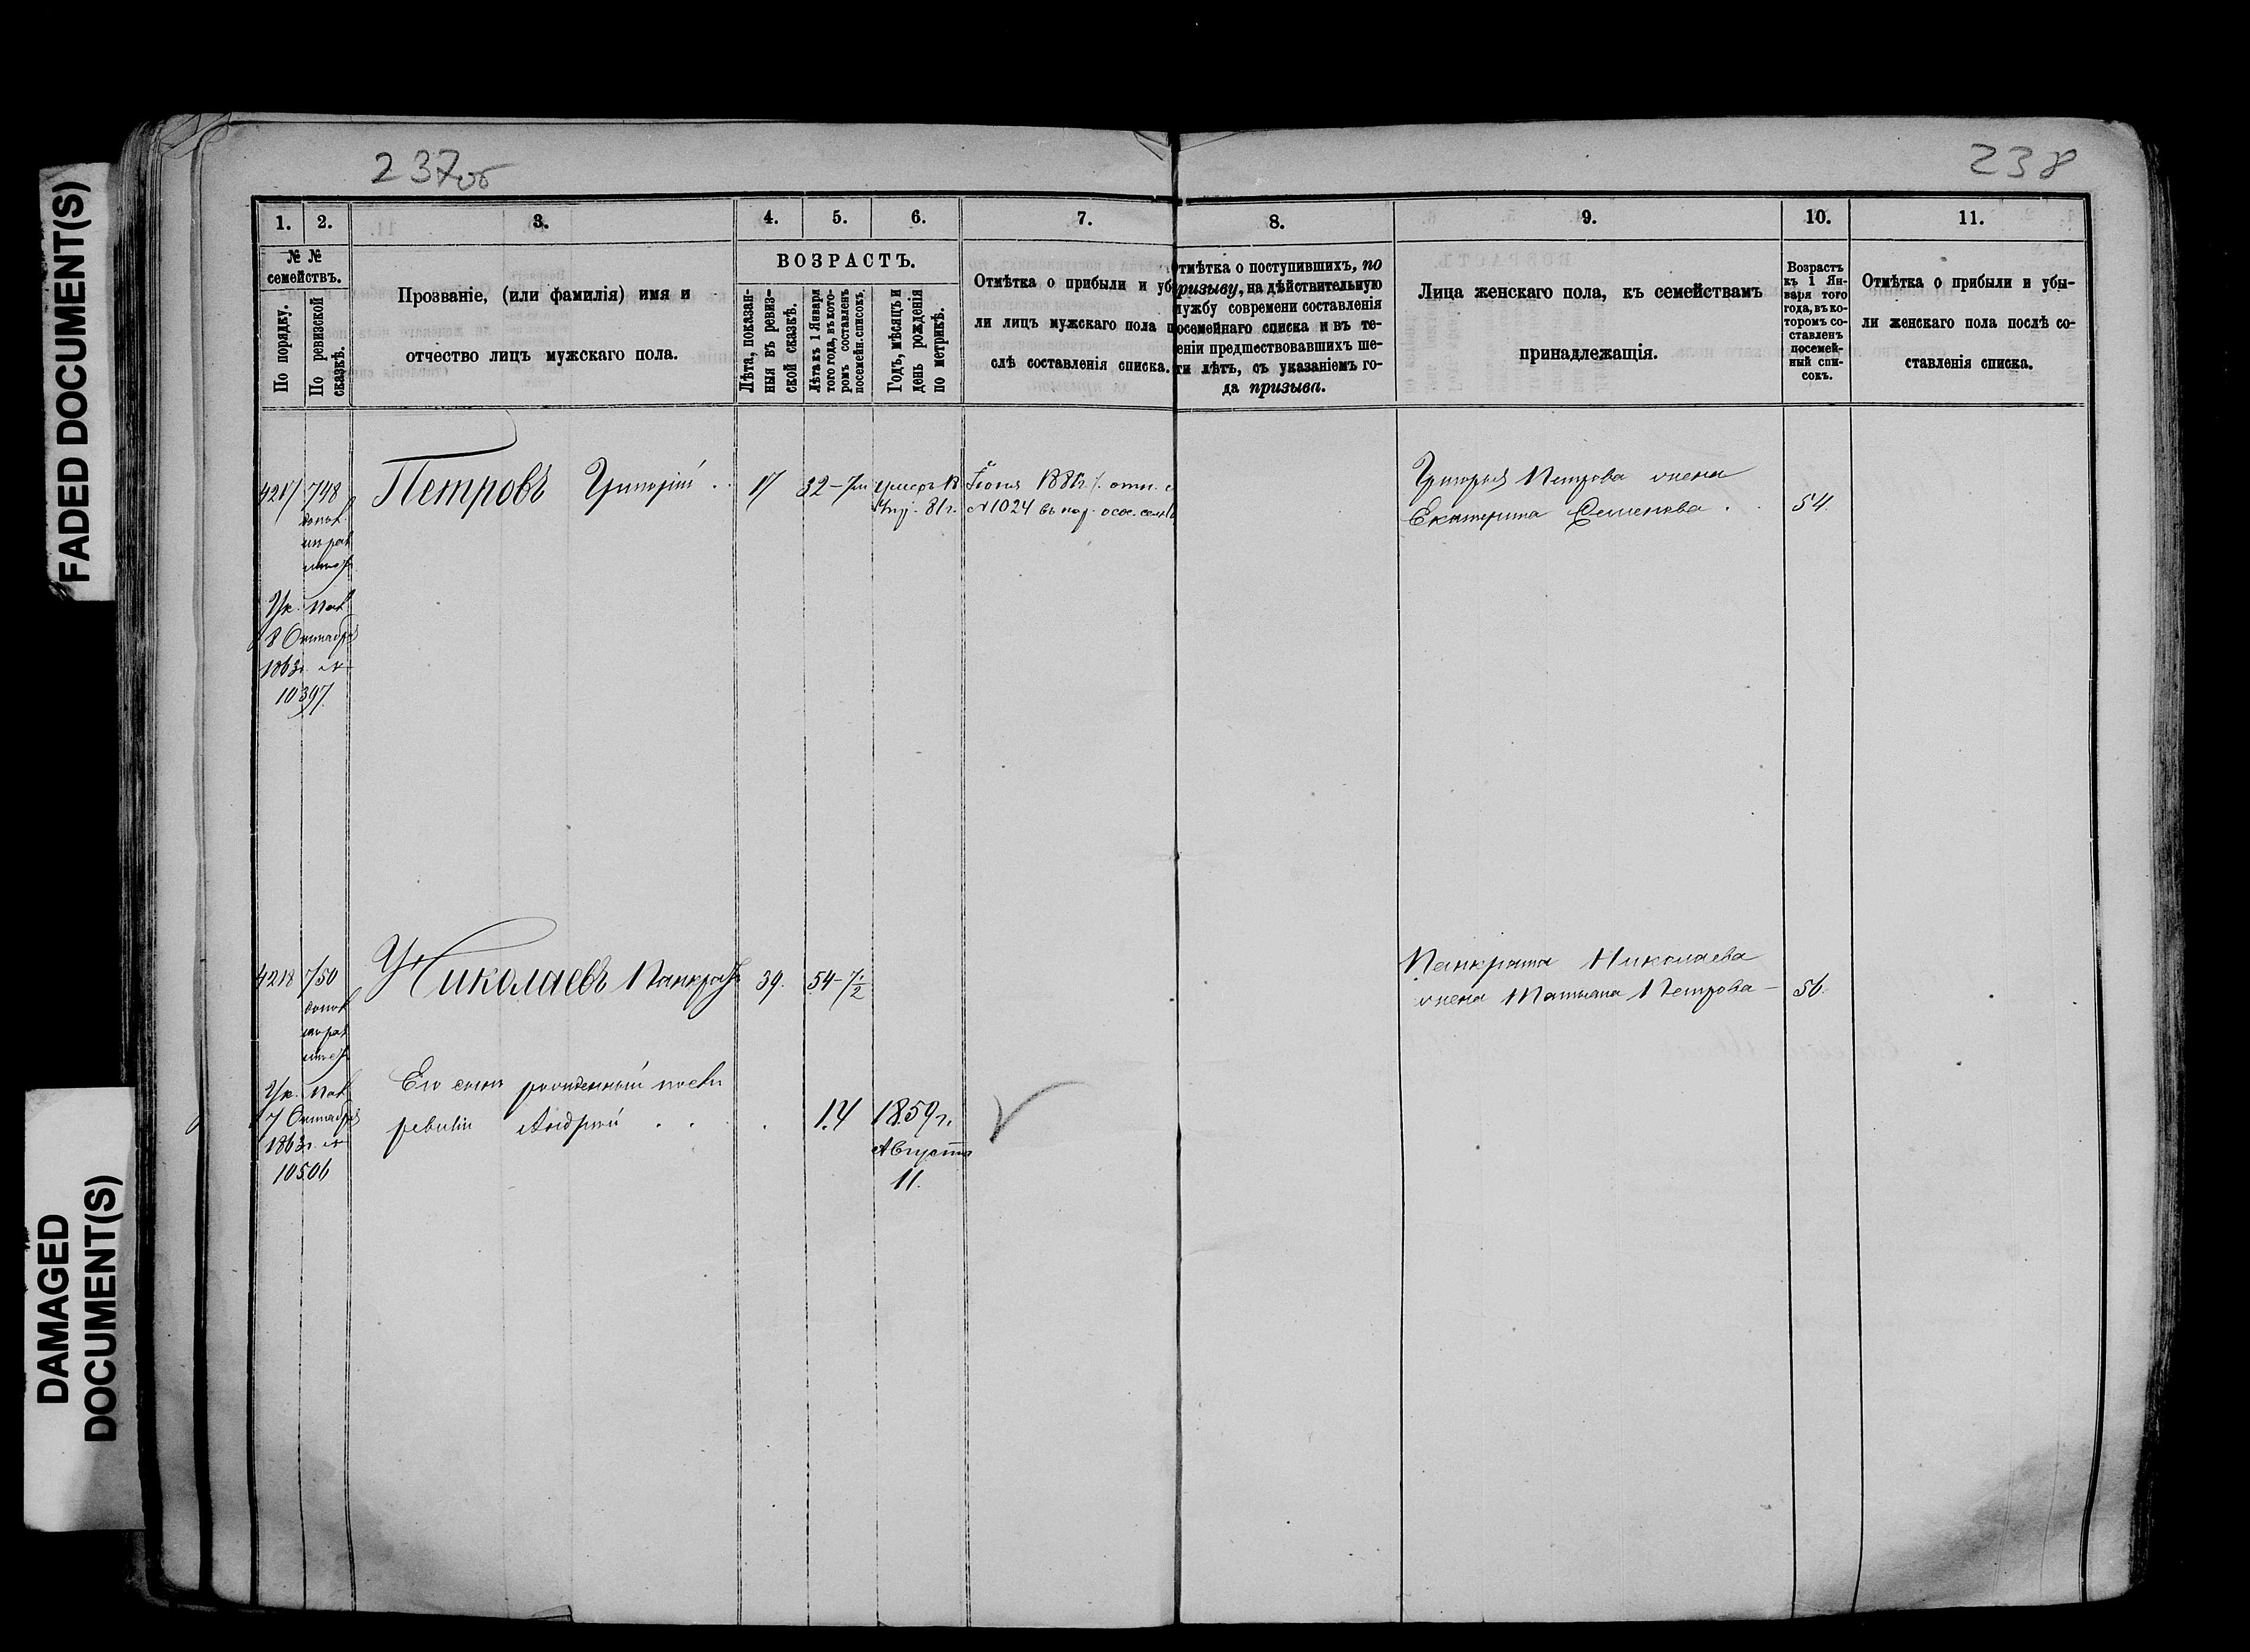 FADED DOCUMENT(S)
DAMAGED
DOCUMENT(S)
237об
238
1. 2. 3. 4. 5. 6. 7. 8. 9. 10. 11.
№ №
семействъ.
По порядку.
По ревизской
сказкѣ.
Прозваніе, (или фамилія) имя и
отчество лицъ мужскаго пола.
ВОЗРАСТЪ.
Лѣта, показан-
ныя въ ревиз-
ской сказкѣ.
Лѣта къ 1 Января
того года, въ кото-
ромъ составленъ
посемейн. списокъ.
Годъ, мѣсяцъ и
день рожденія
по метрикѣ.
Отмѣтка о прибыли и уб
ли лицъ мужскаго пола п
слѣ составленія списка.
тмѣтка о поступившихъ, по
ризыву, на дѣйствительную
лужбу современи составленія
осемейнаго списка и въ те-
еніи предшествовавшихъ ше-
ти лѣтъ, съ указаніемъ го-
да призыва.
Лица женскаго пола, къ семействамъ
принадлежащія.
Возрастъ
къ 1 Ян-
варя того
года, въ ко-
торомъ со-
ставленъ
посемей-
ный спи-
сокъ.
Отмѣтка о прибыли и убы-
ли женскаго пола послѣ со-
ставленія списка.
4217 748 Петровъ Григорій 17 32
№ 1024
Григорья Петрова жена
Екатерина Семенова 54
Ук. Пал.
8 Октября
1863г. №
10397
4218 750 Николаевъ Панкратъ 39. 54-½
Панкрата Николаева
жена Татьяна Петрова 56.
Ук. Пал.
7 Октября
1863г. №
10506
Его сынъ рожденный послѣ
ревизіи Андрей 14 1859г.
Августа
11.